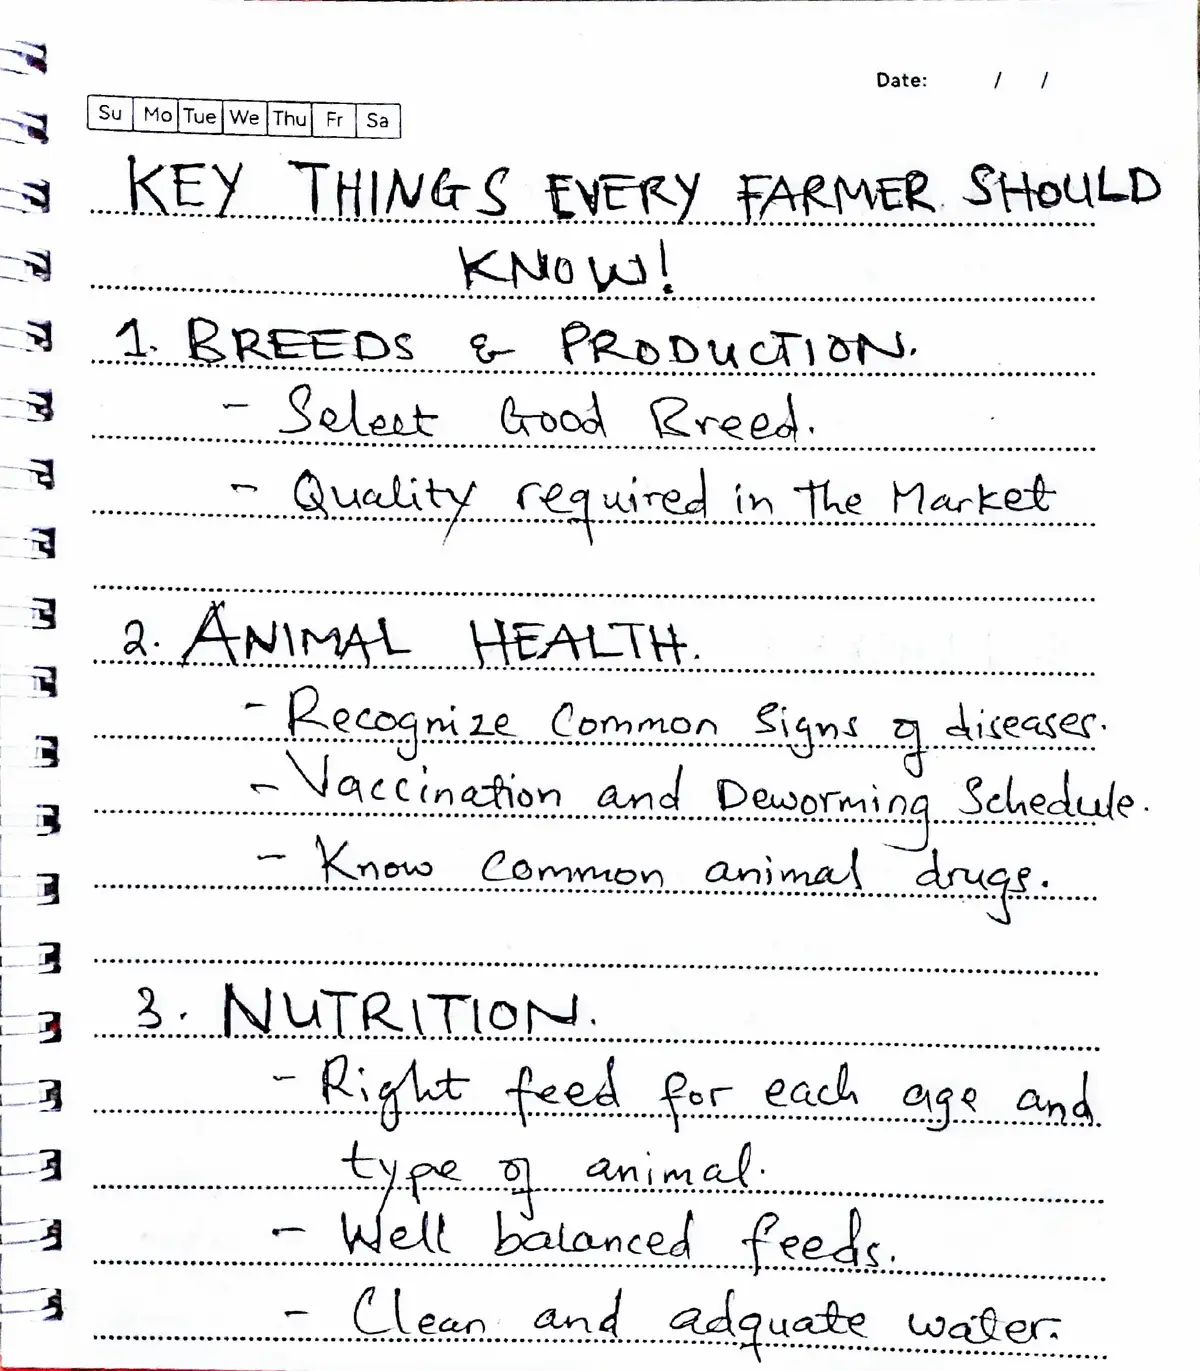 Date: / /
Su Mo Tue We Thu Fr Sa
KEY THINGS EVERY FARMER SHOULD
KNOW!
1. BREEDS & PRODUCTION.
- Select Good Breed.
- Quality required in the Market
2. ANIMAL HEALTH.
- Recognize Common Signs of diseases.
- Vaccination and Deworming Schedule.
- Know Common animal drugs.
3. NUTRITION.
- Right feed for each age and
type of animal.
- Well balanced feeds.
- Clean and adquate water.